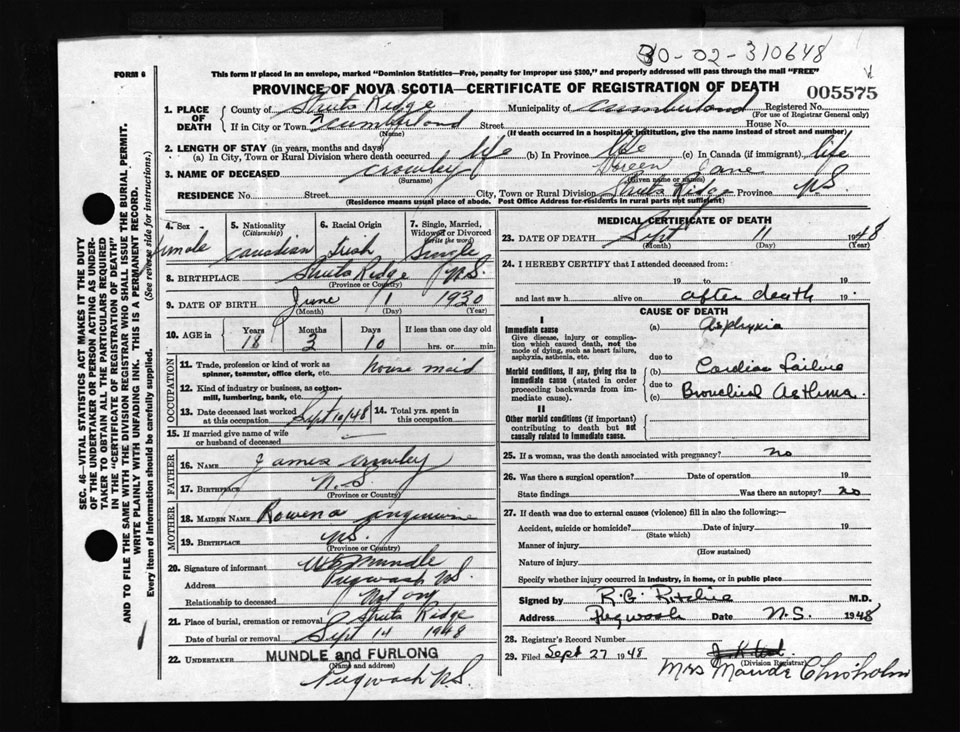 30-02-310648
FORM 6
This form if placed in an envelope, marked "Dominion Statistics—Free, penalty for improper use $300," and properly addressed will pass through the mail "FREE"
PROVINCE OF NOVA SCOTIA—CERTIFICATE OF REGISTRATION OF DEATH
005575
1. PLACE OF DEATH County of Struts Ridge Municipality of Cumberland Registered No.
(For use of Registrar General only)
If in City or Town Cumberland Street House No.
(Name) (If death occurred in a hospital or institution, give the name instead of street and number)
2. LENGTH OF STAY (in years, months and days)
(a) In City, Town or Rural Division where death occurred life (b) In Province life (c) In Canada (if immigrant) life
3. NAME OF DECEASED Crowley Doreen Jane
(Surname) (Given name or names)
RESIDENCE No. Street City, Town or Rural Division Struts Ridge Province N.S.
(Residence means usual place of abode. Post Office Address for residents in rural parts not sufficient)
4. Sex 5. Nationality (Citizenship) 6. Racial Origin 7. Single, Married, Widowed or Divorced (Write the word)
female Canadian Irish Single
8. BIRTHPLACE Struts Ridge N.S.
(Province or Country)
9. DATE OF BIRTH June 1 1930
(Month) (Day) (Year)
10. AGE in Years Months Days If less than one day old
18 3 10 hrs. or min.
OCCUPATION
11. Trade, profession or kind of work as spinner, teamster, office clerk, etc. house maid
12. Kind of industry or business, as cotton-mill, lumbering, bank, etc.
13. Date deceased last worked at this occupation Sept 10/48 14. Total yrs. spent in this occupation
15. If married give name of wife or husband of deceased —
FATHER
16. NAME James Crowley
17. BIRTHPLACE N.S
(Province or Country)
MOTHER
18. MAIDEN NAME Rowena
19. BIRTHPLACE N.S.
(Province or Country)
20. Signature of informant Mundle
Address Pugwash N.S.
Relationship to deceased Not any
21. Place of burial, cremation or removal Struts Ridge
Date of burial or removal Sept 14 1948
22. UNDERTAKER MUNDLE and FURLONG
(Name and address)
Pugwash N.S.
MEDICAL CERTIFICATE OF DEATH
23. DATE OF DEATH Sept 11 1948
(Month) (Day) (Year)
24. I HEREBY CERTIFY that I attended deceased from:
19 to 19
and last saw h alive on after death 19
CAUSE OF DEATH
I
Immediate cause
Give disease, injury or complication which caused death, not the mode of dying, such as heart failure, asphyxia, asthenia, etc.
(a) Asphyxia
due to
Morbid conditions, if any, giving rise to immediate cause (stated in order proceeding backwards from immediate cause).
(b) Cardiac Failure
due to
(c) Bronchial Asthma.
II
Other morbid conditions (if important) contributing to death but not causally related to immediate cause.
25. If a woman, was the death associated with pregnancy? no
26. Was there a surgical operation? Date of operation 19
State findings Was there an autopsy? no
27. If death was due to external causes (violence) fill in also the following:—
Accident, suicide or homicide? Date of injury 19
(State which)
Manner of injury
(How sustained)
Nature of injury
Specify whether injury occurred in industry, in home, or in public place
Signed by R.G. Ritchie M.D.
Address Pugwash Date N.S. 1948
28. Registrar's Record Number
29. Filed Sept 27 1948
(Division Registrar)
Mrs Maude Chisholm
SEC. 46—VITAL STATISTICS ACT MAKES IT THE DUTY OF THE UNDERTAKER OR PERSON ACTING AS UNDERTAKER TO OBTAIN ALL THE PARTICULARS REQUIRED IN THE "CERTIFICATE OF REGISTRATION OF DEATH" AND TO FILE THE SAME WITH THE DIVISION REGISTRAR WHO SHALL ISSUE THE BURIAL PERMIT.
WRITE PLAINLY WITH UNFADING INK. THIS IS A PERMANENT RECORD.
Every item of information should be carefully supplied. (See reverse side for instructions.)